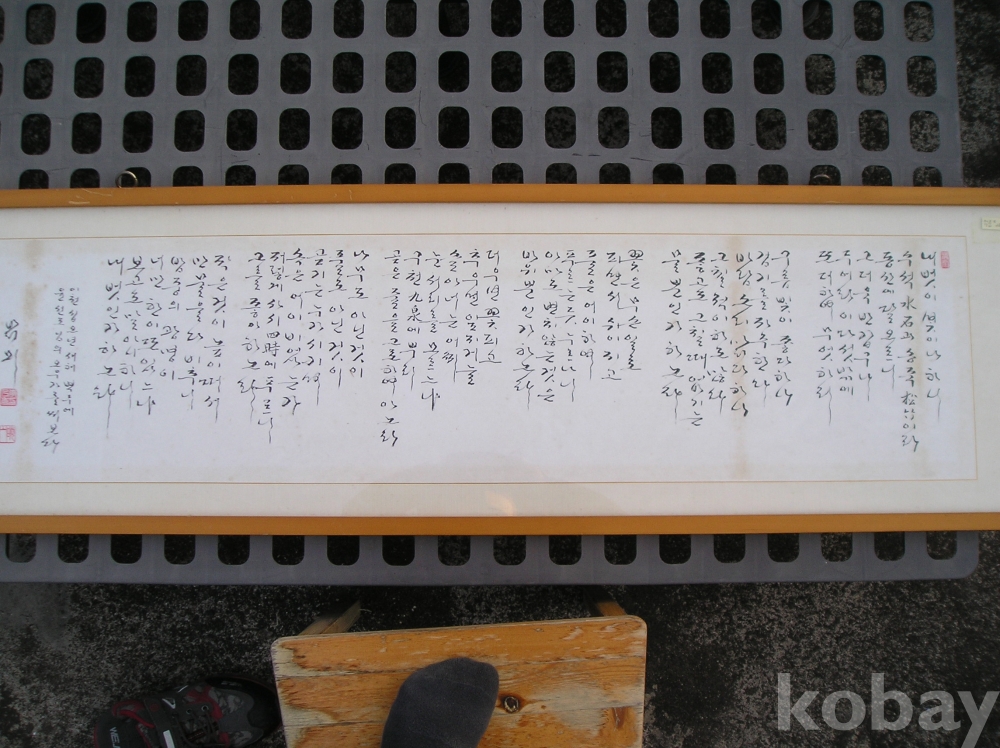 내 벗이 몇이나 하니
수석 水石과 송죽 松竹이라
동산에 달 오르니
그 더욱 반갑구나
두어라 이 다섯 밖에
또 더하여 무엇하리
구름 빛이 좋다 하나
검기를 자주 한다
바람 소리 맑다 하나
그칠 적이 하도 많다
좋고도 그칠 때 없기는
물 뿐인가 하노라
꽃은 무슨 일로
피면서 쉬이 지고
풀은 어이하여
푸르는 듯 누르나니
아마도 변치 않는 것은
바위 뿐인가 하노라
더우면 꽃 피고
추우면 잎 지거늘
솔아 너는 어찌
눈 서리를 모르느냐
구천 九泉에 뿌리
곧은 줄을 그로 하여 아노라
나무도 아닌 것이
풀도 아닌 것이
곧기는 누가 시키며
속은 어이 비었는가
저렇게 사시 四時에 푸르니
그를 좋아하노라
작은 것이 높이 떠서
만물을 다 비추니
밤중의 광명이
너만한 이 또 있느냐
보고도 말 아니 하니
내 벗인가 하노라
kobay